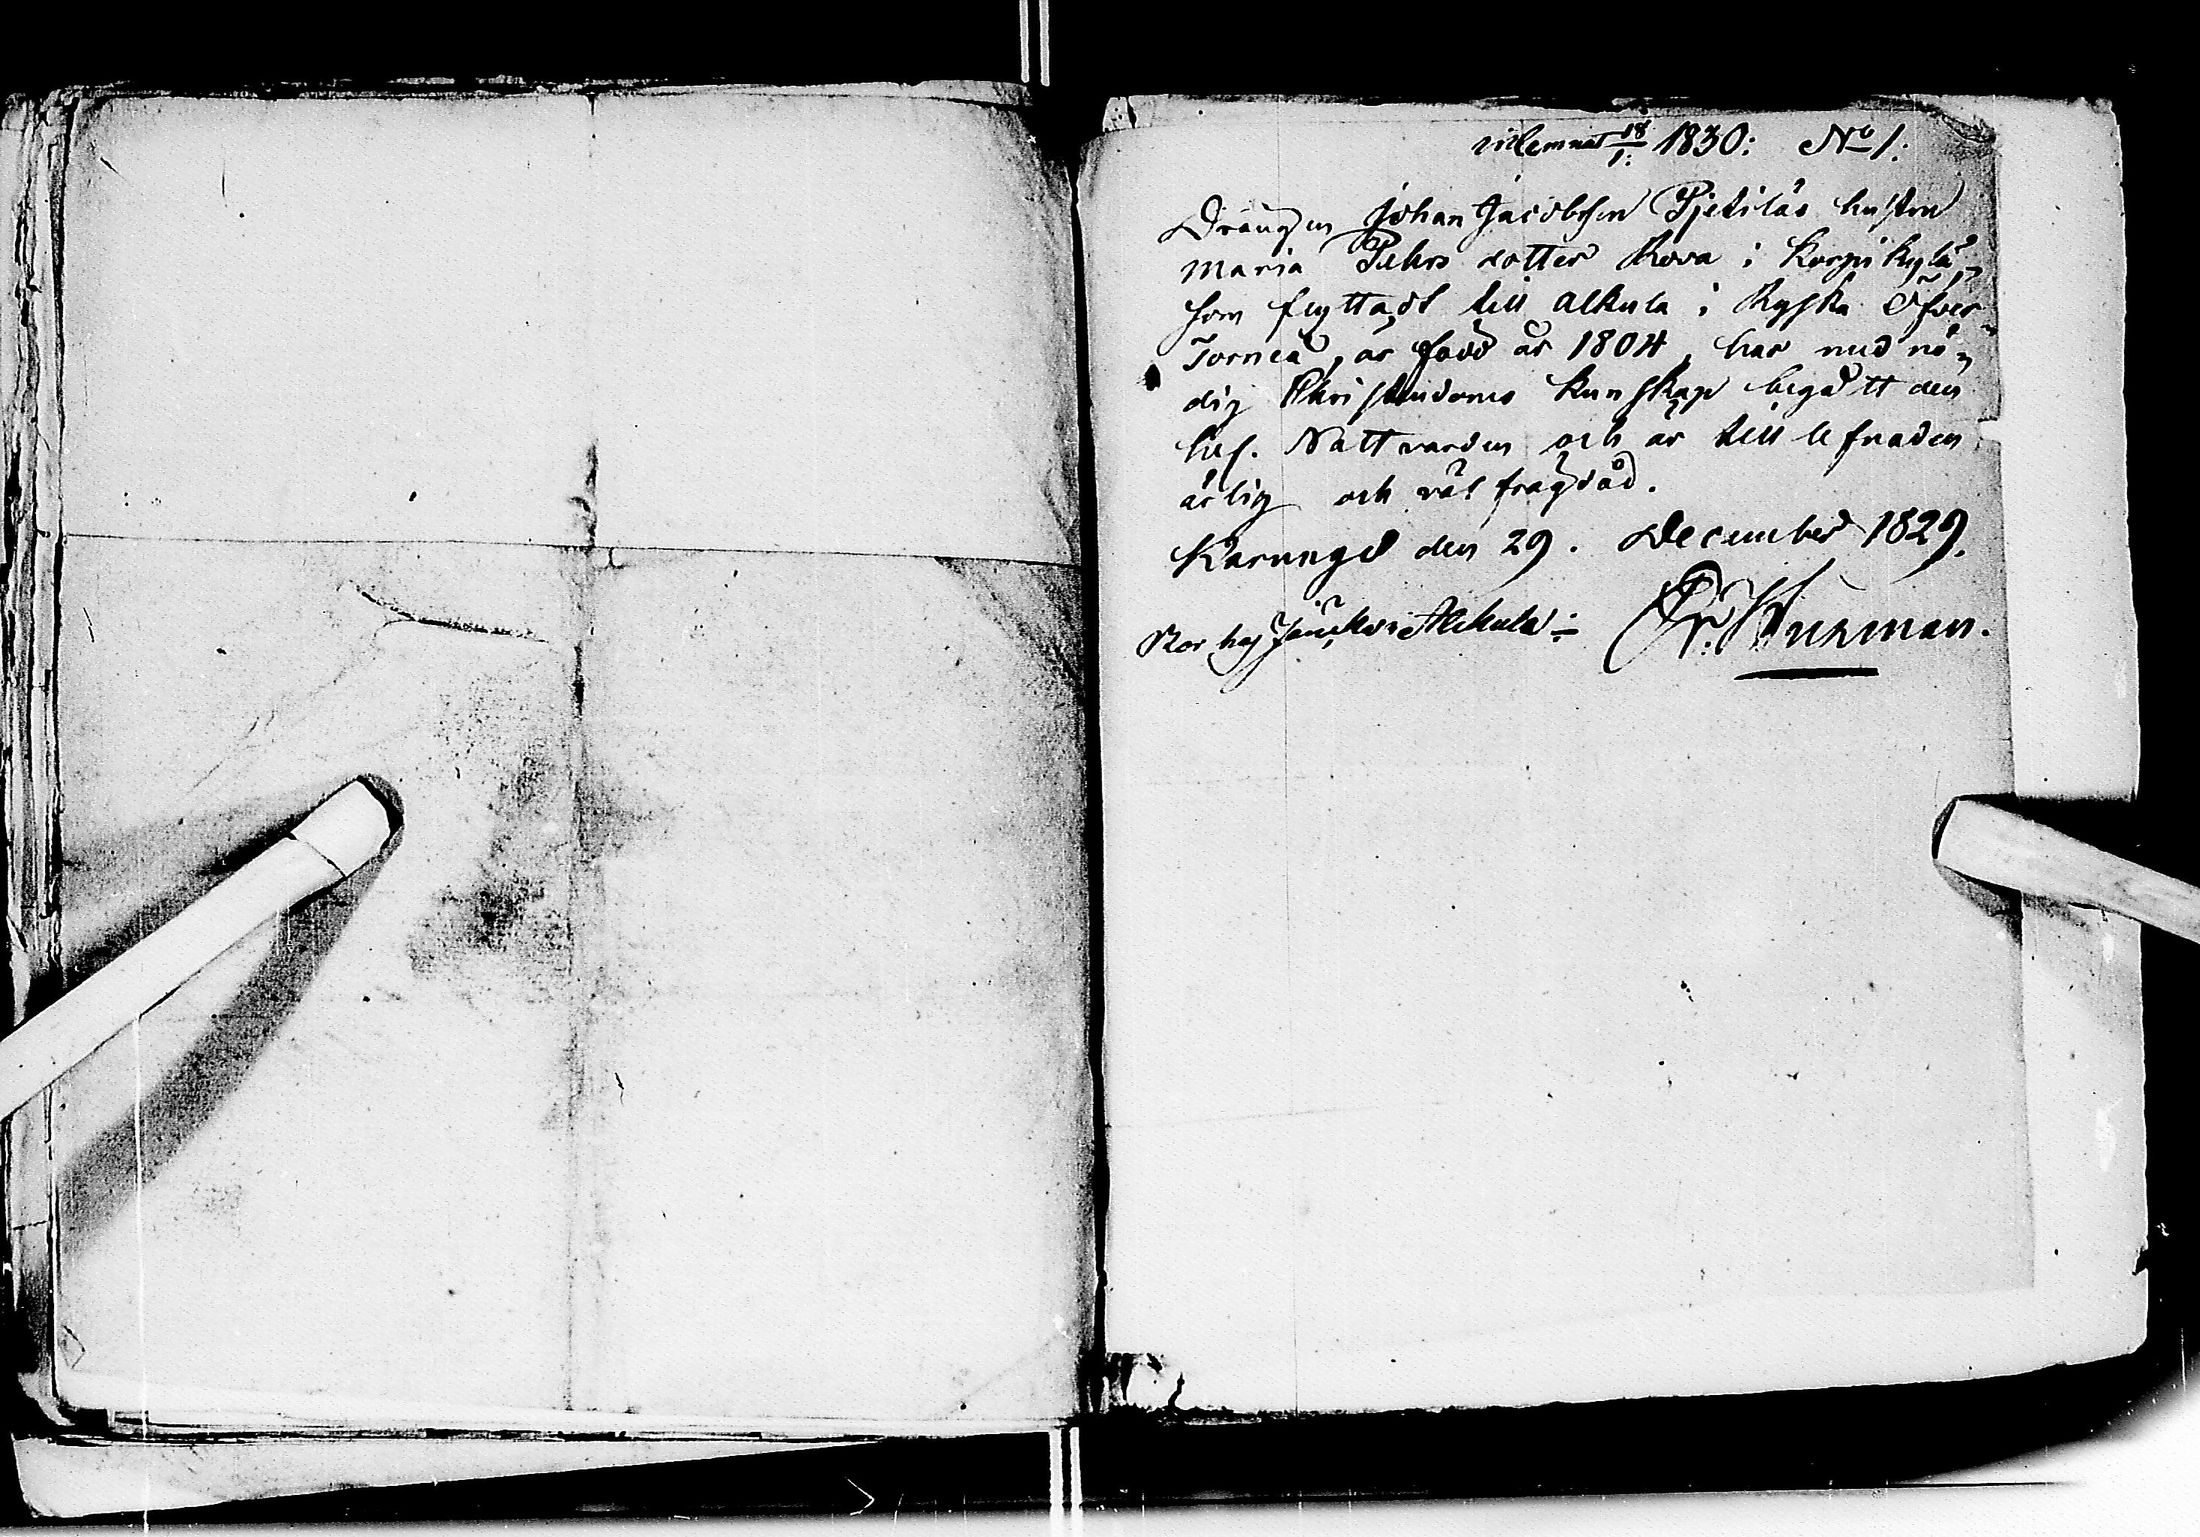 inlemnat 18/1: 1830: No 1:
Drängen Johan Jacobsson Pjetiläs hustru
Maria Pehrs dotter Rova i Korpikylä,
som flyttadt till Alkula i Ryska Öfver
Torneå, är född år 1804, har med nö,,
dig Christendoms kunskap begått den
hel. Nattvarden och är till lefnaden
ärlig och väl frägdad.
Karungi den 29. December 1829.
hos i Alkula